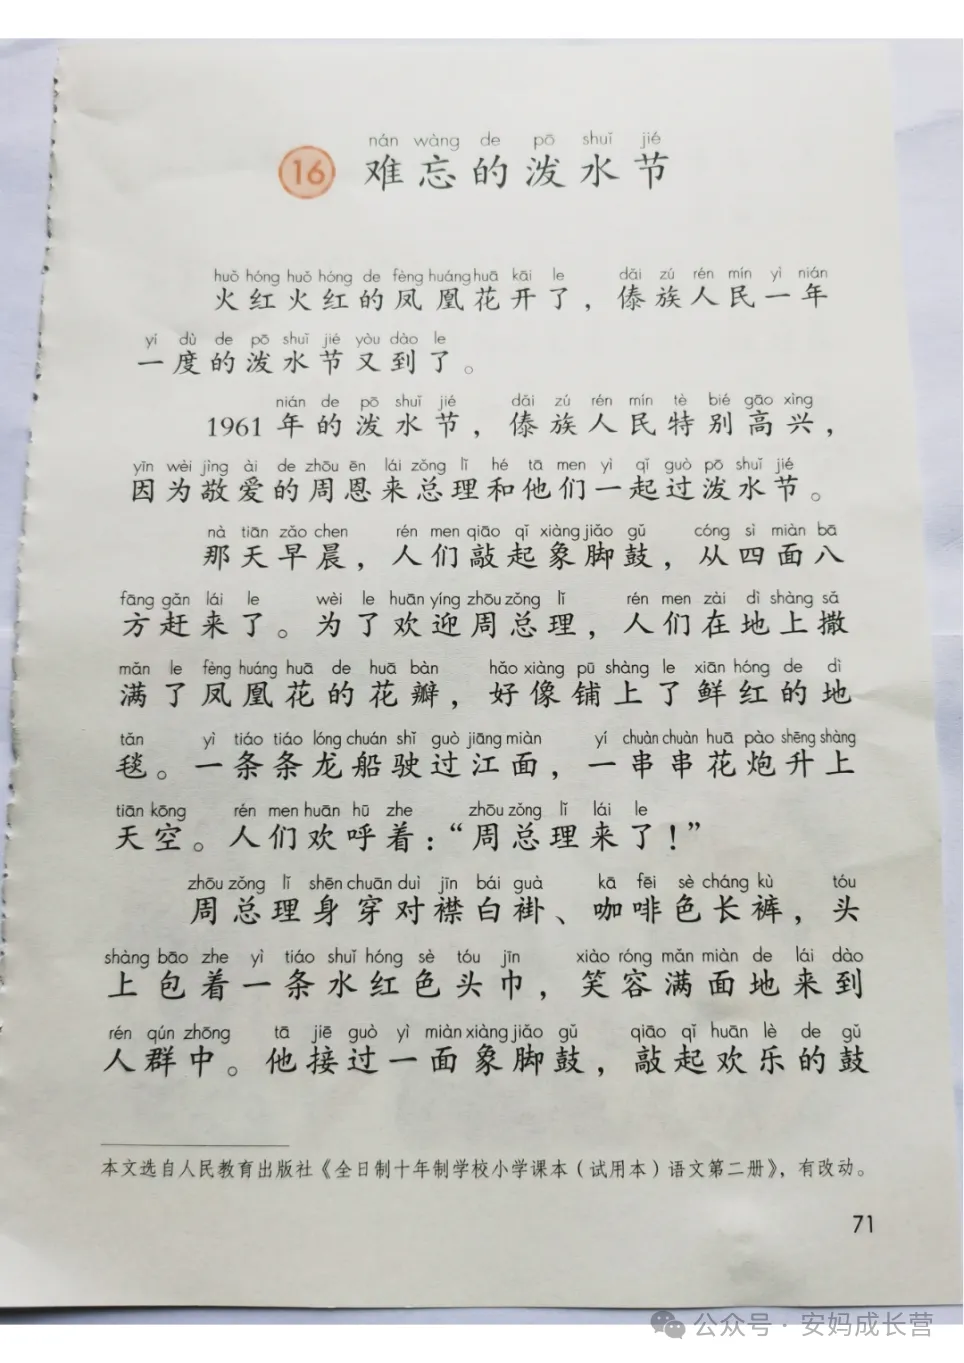 nán wàng de pō shuǐ jié
16 难忘的泼水节
huǒ hóng huǒ hóng de fèng huáng huā kāi le dǎi zú rén mín yì nián
火红火红的凤凰花开了，傣族人民一年
yí dù de pō shuǐ jié yòu dào le
一度的泼水节又到了。
nián de pō shuǐ jié dǎi zú rén mín tè bié gāo xìng
1961 年的泼水节，傣族人民特别高兴，
yīn wèi jìng ài de zhōu ēn lái zǒng lǐ hé tā men yì qǐ guò pō shuǐ jié
因为敬爱的周恩来总理和他们一起过泼水节。
nà tiān zǎo chen rén men qiāo qǐ xiàng jiǎo gǔ cóng sì miàn bā
那天早晨，人们敲起象脚鼓，从四面八
fāng gǎn lái le wèi le huān yíng zhōu zǒng lǐ rén men zài dì shàng sǎ
方赶来了。为了欢迎周总理，人们在地上撒
mǎn le fèng huáng huā de huā bàn hǎo xiàng pū shàng le xiān hóng de dì
满了凤凰花的花瓣，好像铺上了鲜红的地
tǎn yì tiáo tiáo lóng chuán shǐ guò jiāng miàn yí chuàn chuàn huā pào shēng shàng
毯。一条条龙船驶过江面，一串串花炮升上
tiān kōng rén men huān hū zhe zhōu zǒng lǐ lái le
天空。人们欢呼着：“周总理来了！”
zhōu zǒng lǐ shēn chuān duì jīn bái guà kā fēi sè cháng kù tóu
周总理身穿对襟白褂、咖啡色长裤，头
shàng bāo zhe yì tiáo shuǐ hóng sè tóu jīn xiào róng mǎn miàn de lái dào
上包着一条水红色头巾，笑容满面地来到
rén qún zhōng tā jiē guò yì miàn xiàng jiǎo gǔ qiāo qǐ huān lè de gǔ
人群中。他接过一面象脚鼓，敲起欢乐的鼓
本文选自人民教育出版社《全日制十年制学校小学课本（试用本）语文第二册》，有改动。
71
公众号·安妈成长营